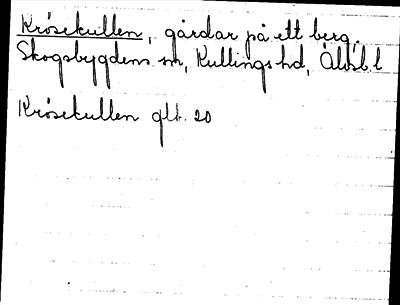 Krösekullen, gårdar på ett berg.
Skogsbygdens sn, Kullings hd, Älvsb.l
Krösekullen glt. 20